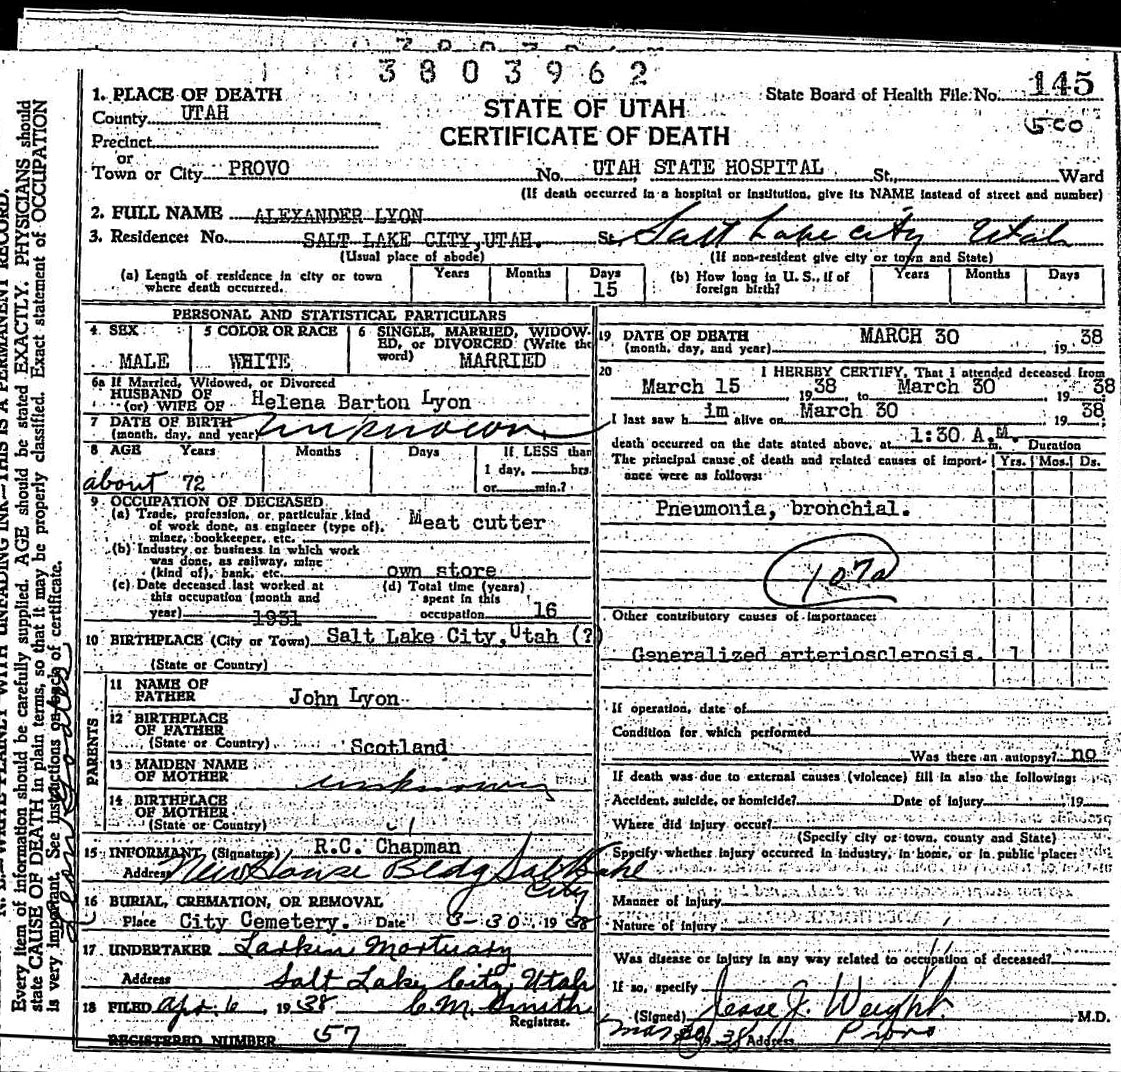 3803962
1. PLACE OF DEATH
County UTAH
Precinct
or
Town or City PROVO
STATE OF UTAH
CERTIFICATE OF DEATH
State Board of Health File No. 145
No. UTAH STATE HOSPITAL St., Ward
(If death occurred in a hospital or institution, give its NAME instead of street and number)
2. FULL NAME ALEXANDER LYON
3. Residence: No. SALT LAKE CITY, UTAH. St. Salt Lake City Utah
(Usual place of abode) (If non-resident give city or town and State)
(a) Length of residence in city or town where death occurred. Years Months Days 15
(b) How long in U. S., if of foreign birth? Years Months Days
PERSONAL AND STATISTICAL PARTICULARS
4. SEX MALE
5 COLOR OR RACE WHITE
6 SINGLE, MARRIED, WIDOWED, or DIVORCED (Write the word) MARRIED
6a If Married, Widowed, or Divorced
HUSBAND OF
(or) WIFE OF Helena Barton Lyon
7 DATE OF BIRTH
(month, day, and year) unknown
8 AGE Years Months Days If LESS than
1 day, hrs.
or min.?
about 72
9 OCCUPATION OF DECEASED
(a) Trade, profession, or particular kind
of work done, as engineer (type of),
miner, bookkeeper, etc. Meat cutter
(b) Industry or business in which work
was done, as railway, mine
(kind of), bank, etc. own store
(c) Date deceased last worked at
this occupation (month and
year) 1931
(d) Total time (years)
spent in this
occupation 16
10 BIRTHPLACE (City or Town) Salt Lake City, Utah (?)
(State or Country)
PARENTS
11 NAME OF
FATHER John Lyon
12 BIRTHPLACE
OF FATHER
(State or Country) Scotland
13 MAIDEN NAME
OF MOTHER unknown
14 BIRTHPLACE
OF MOTHER
(State or Country)
15 INFORMANT (Signature) R.C. Chapman
Address New House Bldg Salt Lake
City
16 BURIAL, CREMATION, OR REMOVAL
Place City Cemetery. Date 3-30, 1938
17 UNDERTAKER Larkin Mortuary
Address Salt Lake City, Utah
18 FILED Apr. 6, 1938 C.M. Smith
Registrar.
REGISTERED NUMBER 57
19 DATE OF DEATH
(month, day, and year) MARCH 30 1938
20 I HEREBY CERTIFY, That I attended deceased from
March 15 1938, to March 30 1938
I last saw him alive on March 30 1938
death occurred on the date stated above, at 1:30 A.M. m. Duration
The principal cause of death and related causes of importance were as follows: Yrs. Mos. Ds.
Pneumonia, bronchial.
107a
Other contributory causes of importance:
Generalized arteriosclerosis. 1
If operation, date of
Condition for which performed
Was there an autopsy? no
If death was due to external causes (violence) fill in also the following:
Accident, suicide, or homicide? Date of injury 19
Where did injury occur?
(Specify city or town, county and State)
Specify whether injury occurred in industry, in home, or in public place:
Manner of injury
Nature of injury
Was disease or injury in any way related to occupation of deceased?
If so, specify
(Signed) Jesse J. Weight M.D.
Mar 30 38 Address Provo
Every item of information should be carefully supplied. AGE should be stated EXACTLY. PHYSICIANS should
state CAUSE OF DEATH in plain terms, so that it may be properly classified. Exact statement of OCCUPATION
is very important. See instructions on back of certificate.